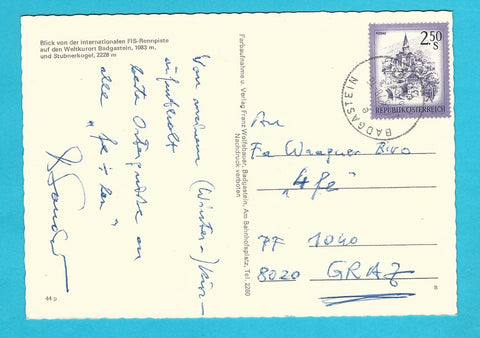 Blick von der internationalen FIS-Rennpiste
auf den Weltkurort Badgastein, 1083 m,
und Stubnerkogel, 2228 m
Von meinem (Winter-) Kur-
aufenthalt
beste Ostergrüße an
alle "
44 p
Farbaufnahme u. Verlag Franz Wolfsbauer, Badgastein, Am Bahnhofsplatz, Tel. 2280
Nachdruck verboten
2.50
S
REPUBLIK ÖSTERREICH
BADGASTEIN
An
Fa Waagner Biro
"4fe"
PF 1040
8020 GRAZ